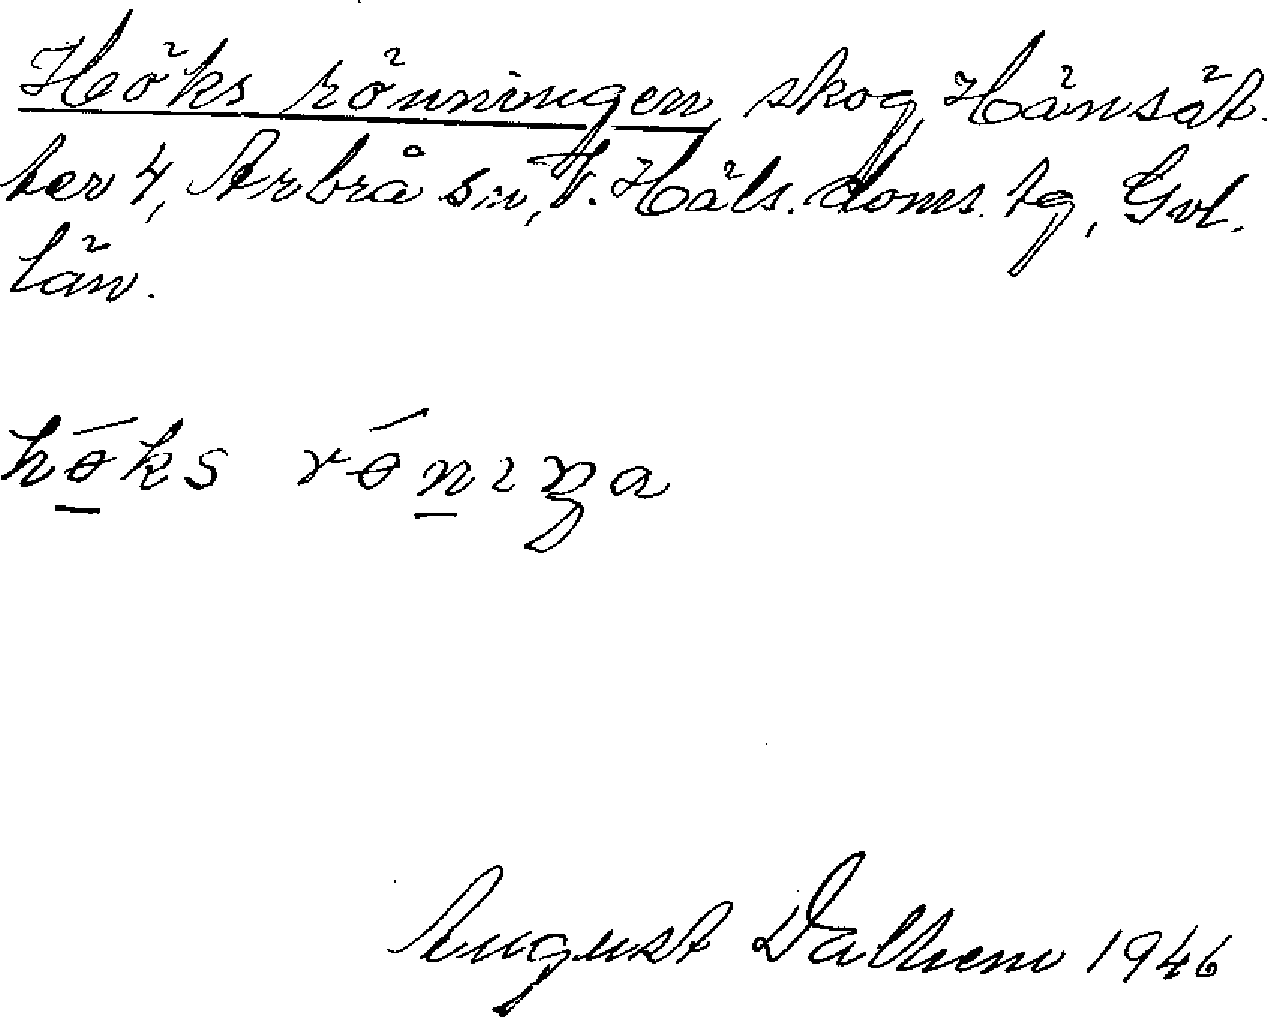 Höks rönningen, skog, Hänsät-
ter 4, Arbrå sn, V. Häls. doms. tg, Gvl.
län.
hö́ks rǿniŋa
August Dalhem 1946